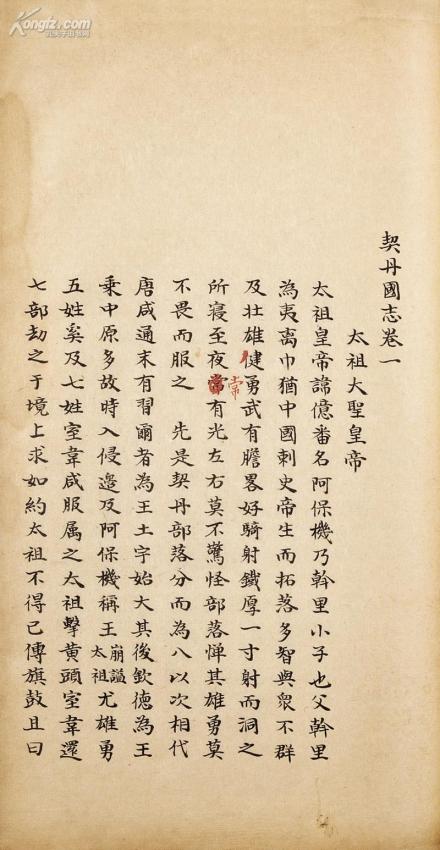 契丹國志卷一
太祖大聖皇帝
太祖皇帝諱億番名阿保機乃斡里小子也父斡里
為夷离巾猶中國刺史帝生而拓落多智與衆不群
及壯雄健勇武有膽畧好騎射鐵厚一寸射而洞之
所寢至夜常有光左右莫不驚怪部落憚其雄勇莫
不畏而服之 先是契丹部落分而為八以次相代
唐咸通末有習爾者為王土宇始大其後欽德為王
乘中原多故時入侵邉及阿保機稱王崩謚太祖尤雄勇
五姓奚及七姓室韋咸服属之太祖擊黄頭室韋還
七部劫之于境上求如約太祖不得已傳旗鼓且曰
Kongfz.com
孔夫子旧书网